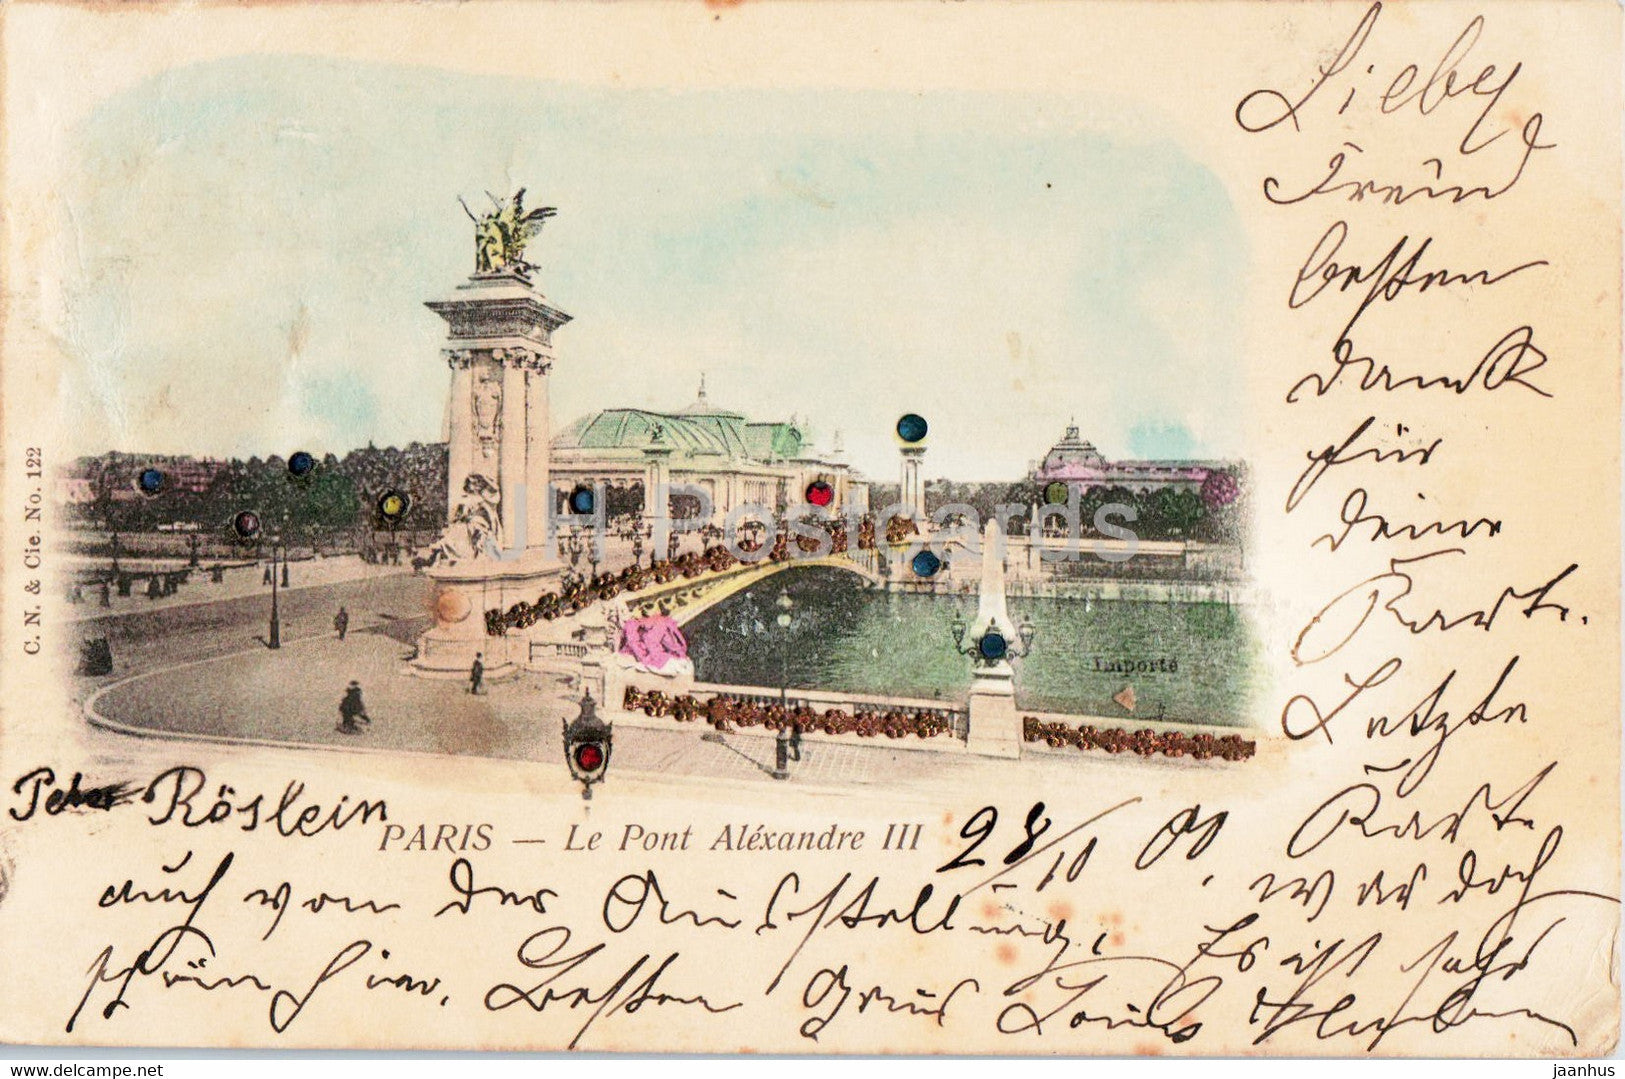 Lieber
Freund
besten
dank
für
deine
Karte.
Letzte
Karte
war doch
C. N. & Cie. No. 122
JH Postcards
Importé
Peter Röslein
PARIS — Le Pont Aléxandre III
28/10 00.
auch von der Ausstellung. Es ist sehr
schön hier. Besten Grus Louis
delcampe.net
jaanhus